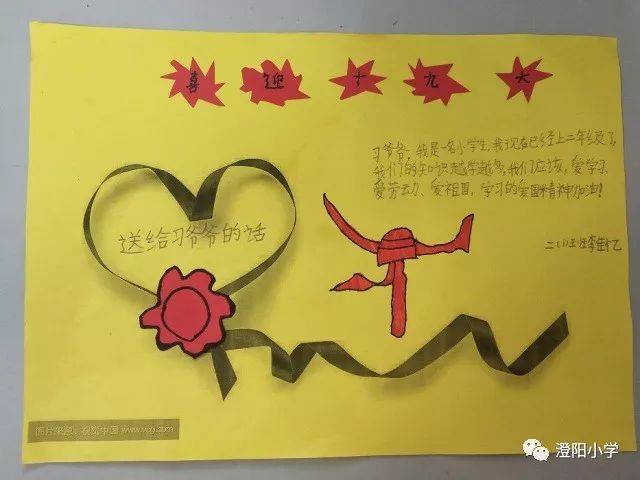 喜迎十九大
习爷爷，我是一名小学生，我现在已经上二年级了，
我们的知识越学越多，我们应该，爱学习
爱劳动、爱祖国，学习的爱国精神加油！
送给习爷爷的话
二(1)班李佳忆
图片来源：视觉中国 www.vcg.com
澄阳小学